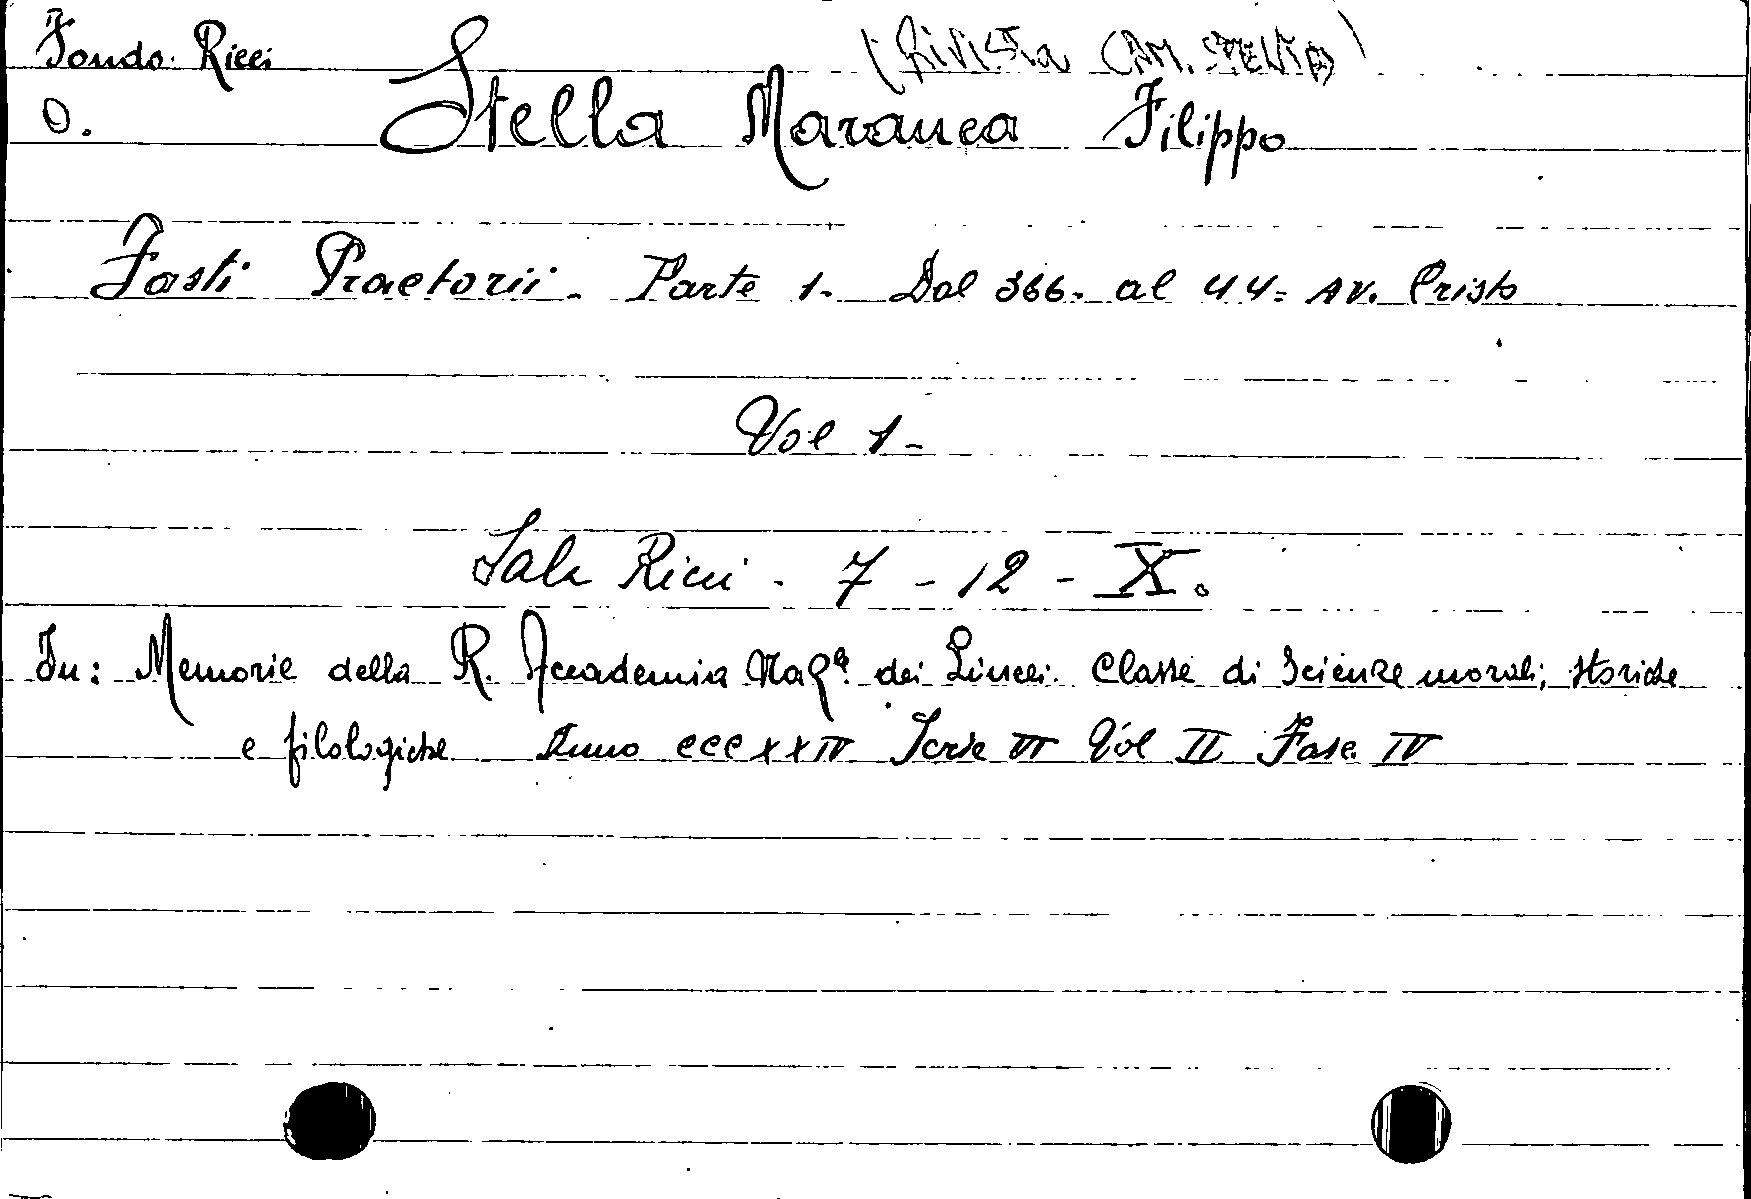 Fondo Ricci
(Rivista
O.
Stella Maranca Filippo
Fasti Praetorii. Parte 1. Dal 366. al 44= av. Cristo
Vol 1-
Sala Ricci - 7 - 12 - X.
In: Memorie della R. Accademia Naz.le dei Lincei. Classe di Scienze morali, storiche
e filologiche Anno CCCXXIV Serie VI Vol II Fasc. IV